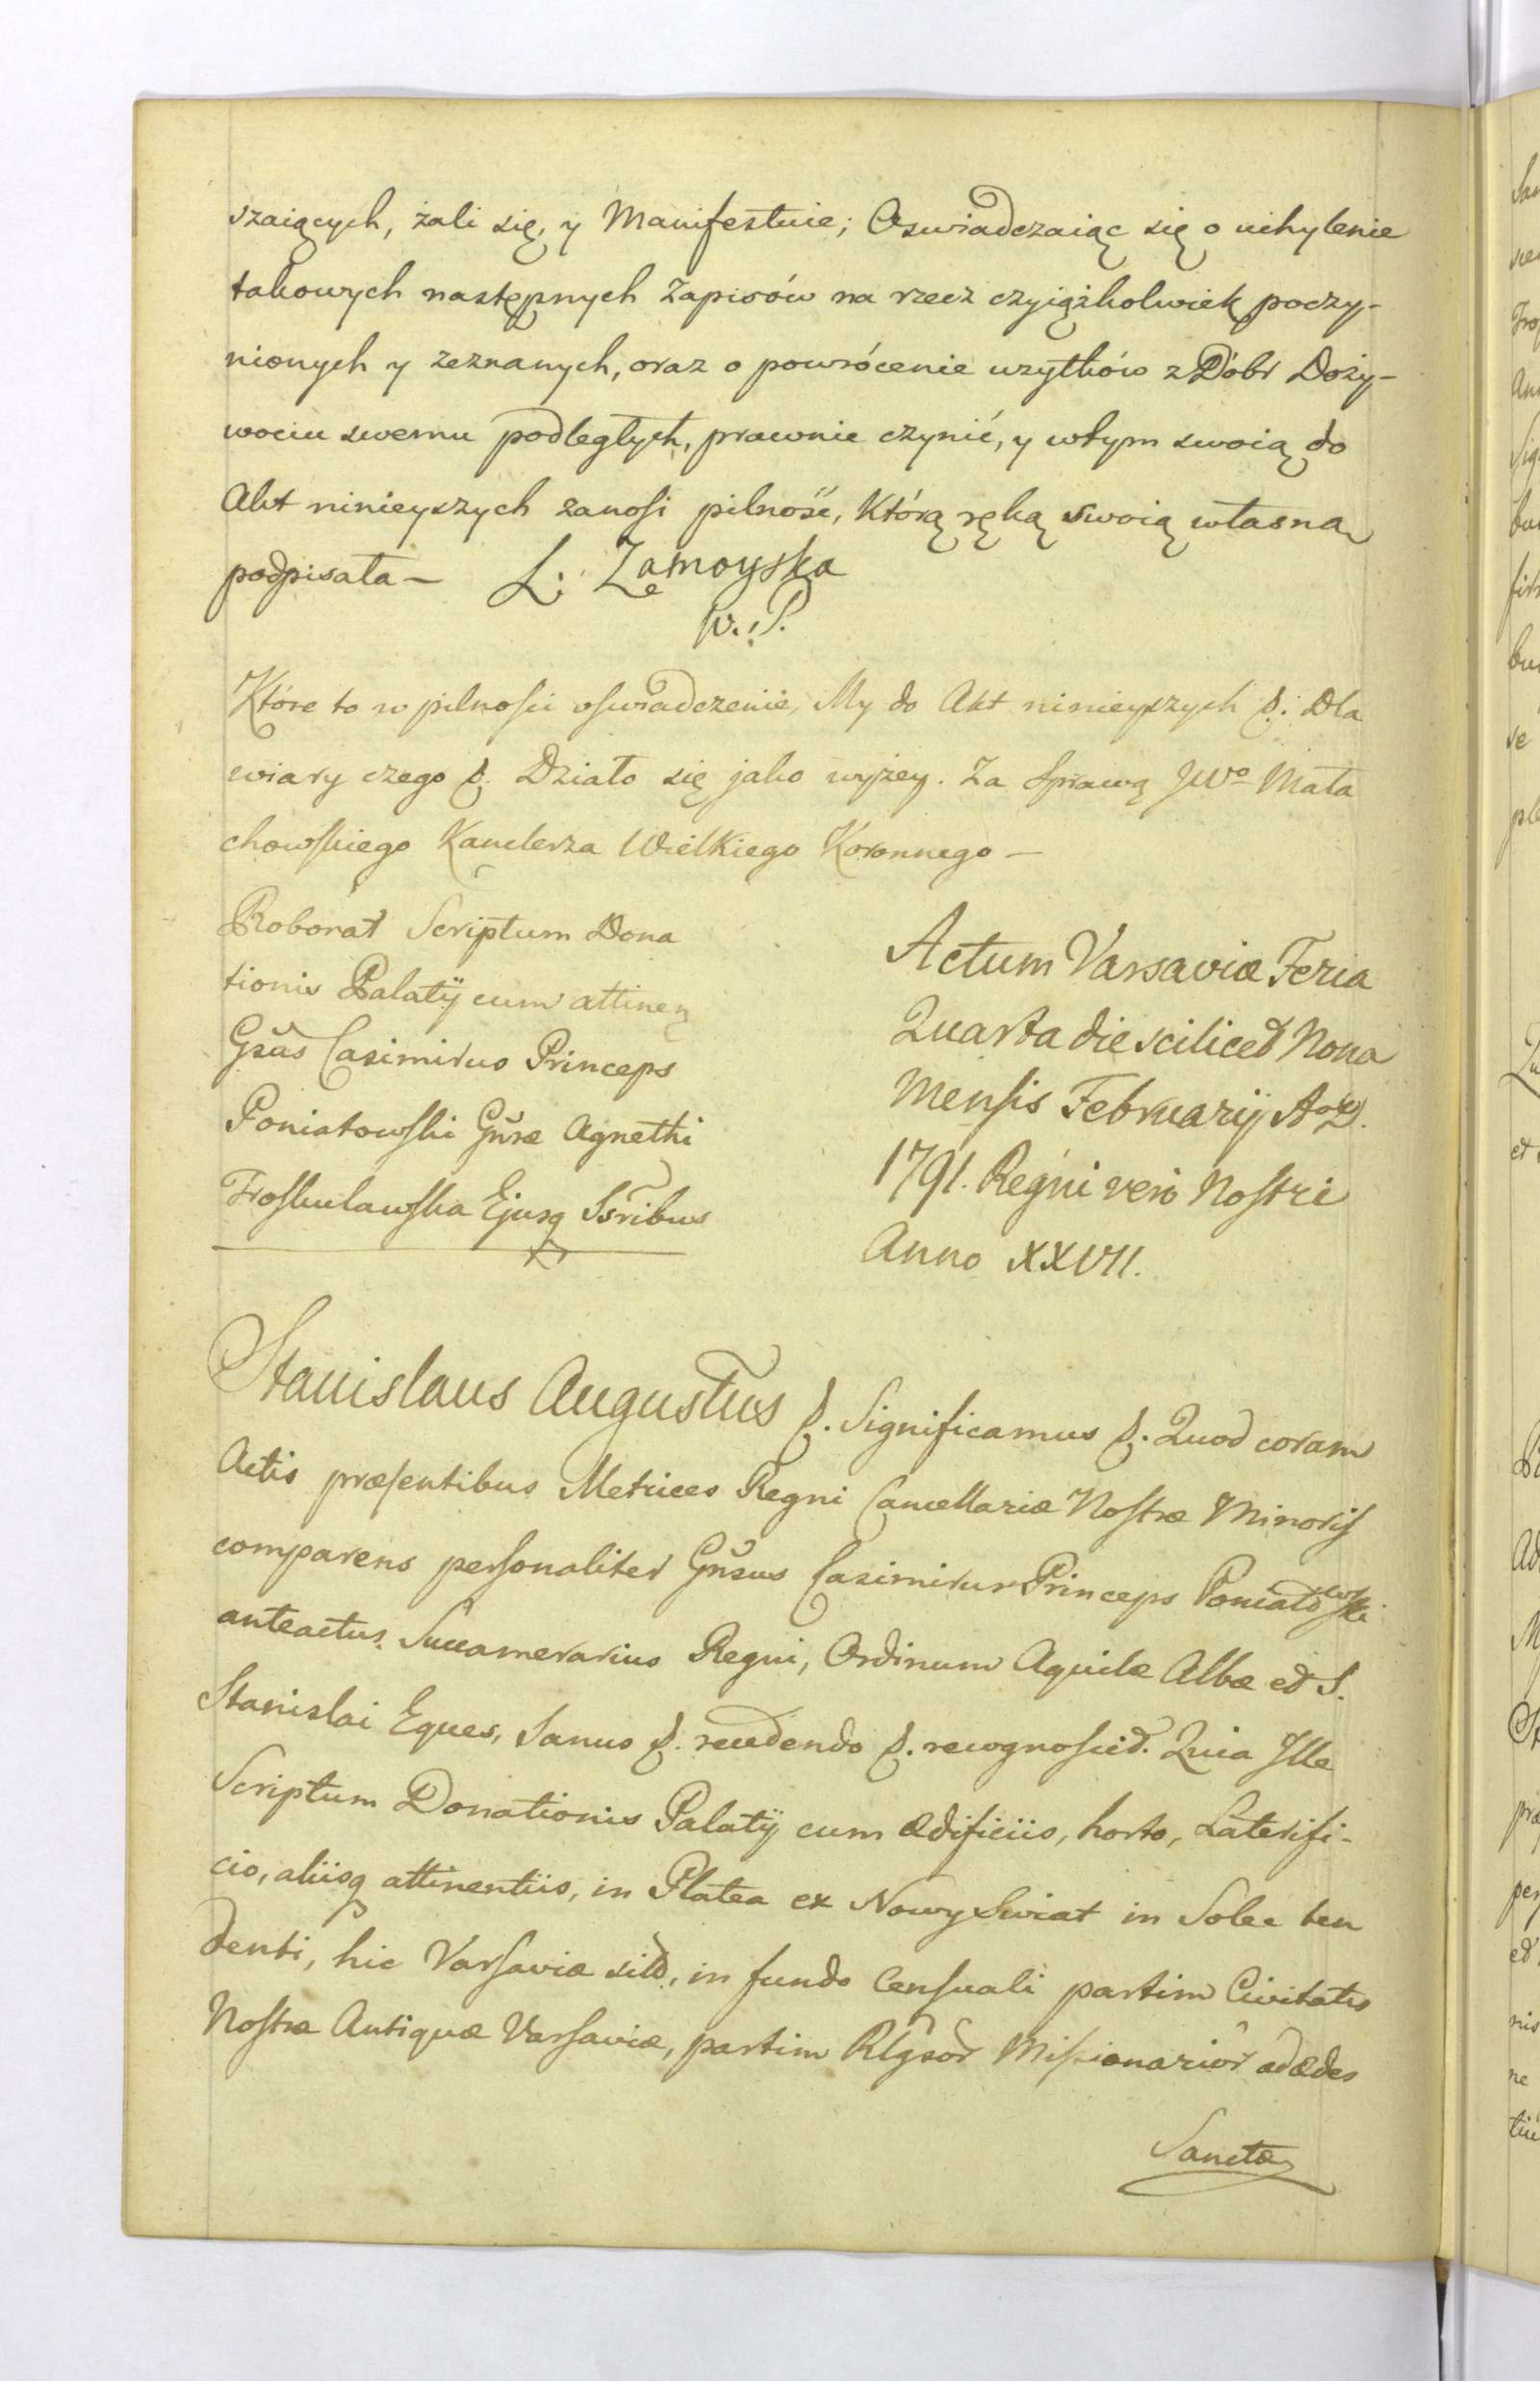 szaiących, żali się, y Manifestuie; Oswiadczaiąc się o uchylenie
takowych następnych Zapisów na rzecz czyiążkolwiek poczy-
nionych y zeznanych, oraz o powrócenie uzytków z Dóbr Doży-
wociu swemu podległych, prawnie czynić, y wtym swoią do
Akt ninieyszych zanosi pilność, Którą ręką swoią własną
podpisała — L: Zamoyska
W. P.
Które to w pilności oswiadczenie, My do Akt ninieyszych &. Dla
wiary czego &. Działo się jako wyżey. Za Sprawą JWo Mała
chowskiego Kanclerza Wielkiego Koronnego —
Roborat Scriptum Dona
tionis Palatij cum attinen
Gnsus Casimirus Princeps
Poniatowski Gnsæ Agnethi
Truskulawska Ejusq Ssribus
Actum Varsaviæ Feria
Quarta die scilicet Nona
Mensis Februarij AoD.
1791. Regni vero Nostri
Anno XXVII.
Stanislaus Augustus &. Significamus &. Quod coram
Actis præsentibus Metrices Regni Cancellariæ Nostræ Minoris
comparens personaliter Gnsus Casimirus Princeps Poniatowski
anteactus Succamerarius Regni, Ordinum Aquilæ Albæ et S.
Stanislai Eques, Sanus &. recedendo &. recognoscit. Quia Ille
Scriptum Donationis Palatij cum ædificiis, horto, Laterifi-
cio, aliisq attinentiis, in Platea ex Nowy Swiat in Solec ten
denti, hic Varsaviæ sito, in fundo Censuali partim Civitatis
Nostræ Antiquæ Varsaviæ, partim Rlgsor Missionarior ad ædes
Sanctæ